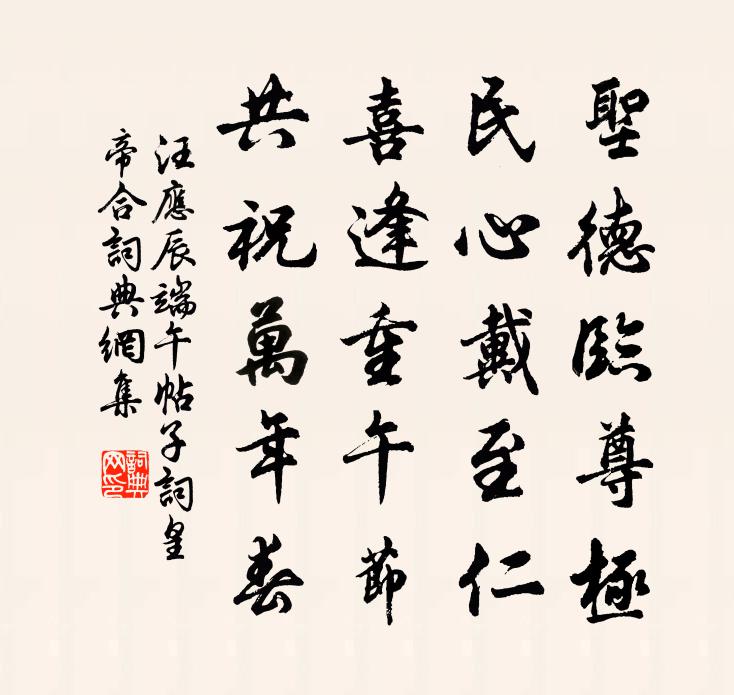 聖德臨尊極
民心戴至仁
喜逢重午節
共祝萬年春
汪應辰端午帖子詞皇
帝合詞典網集
詞典
网印